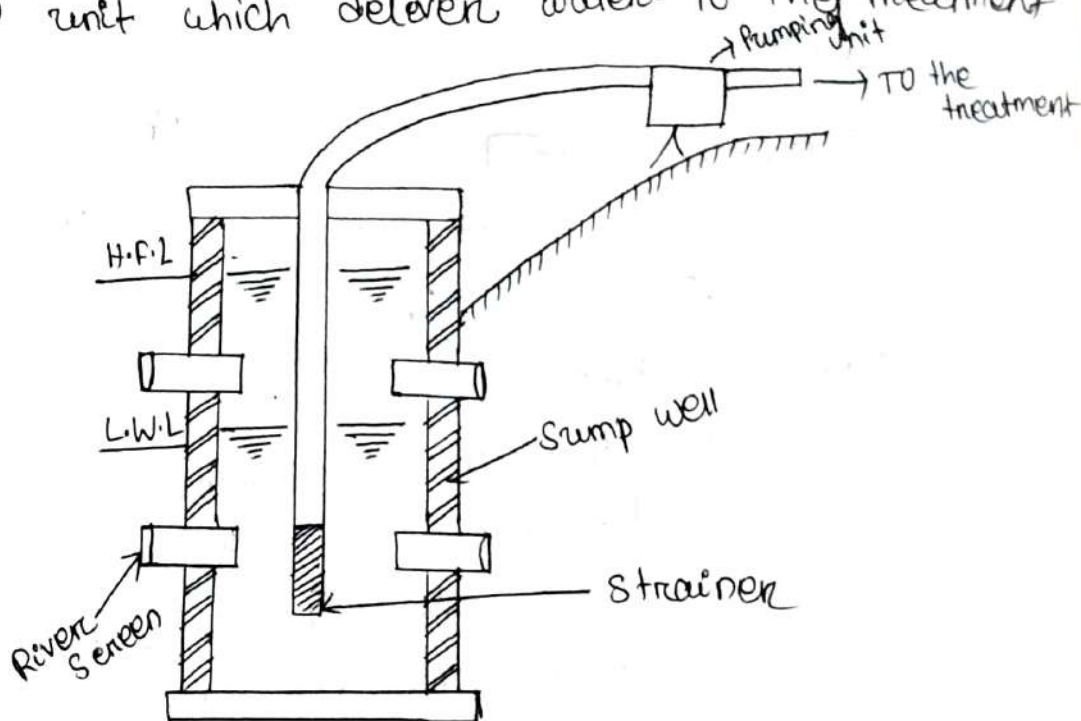 unit which deleven water to the treatment
Pumping
unit
TO the
treatment
H.F.L
L.W.L
Sump well
Strainer
River
Screen